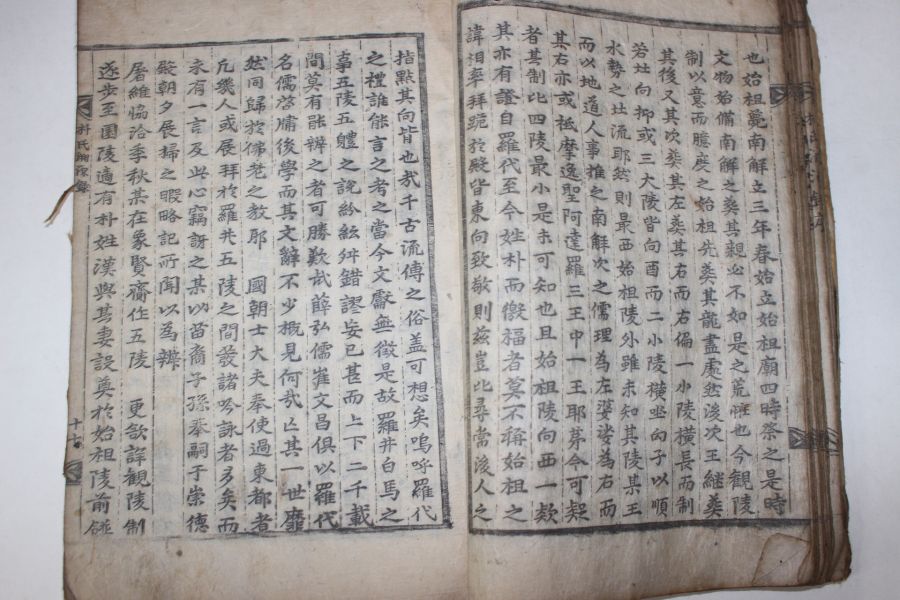 也始祖薨南解立三年春始立始祖廟四時祭之是時
文物始備南解之葬其親必不如是之荒雜也今觀陵
制以意而臆度之始祖先葬其龍盡處然後次王繼葬
其後又其次葬其左葬其右而右偏一小陵橫長而制
若灶向抑或三大陵皆向酉而二小陵橫坐向子以順
水勢之灶流耶然則最西始祖陵外雖未知其陵某王
而以地道人事推之南解次之儒理為左婆娑為右而
其右亦或祗摩逸聖阿達羅三王中一王耶葬今可疑
者其制比四陵最小是未可知也且始祖陵向西一款
其亦有證自羅代至今姓朴而徼福者莫不稱始祖之
諱相率拜跪於殿皆東向致敬則玆豈比尋常後人之
指點其向皆也哉千古流傳之俗盖可想矣嗚呼羅代
之禮誰能言之者之當今文獻無徵是故羅井白馬之
事五陵五軆之說紛紜舛錯謬妄已甚而上下二千載
間莫有能辨之者可勝歎哉薛弘儒崔文昌俱以羅代
名儒啓牖後學而其文辭不少概見何哉亡其一世靡
然同歸於佛老之教耶 國朝士大夫奉使過東都者
凡幾人或展拜於羅井五陵之間發諸吟詠者多矣而
未有一言及此心竊訝之某以苗裔子孫忝嗣于崇德
殿朝夕展掃之暇略記所聞以為辨
屠維協洽季秋某在象賢齋作五陵 更欲詳觀陵制
逐步至園陵適有朴姓漢與其妻誤奠於始祖陵前碰
十七